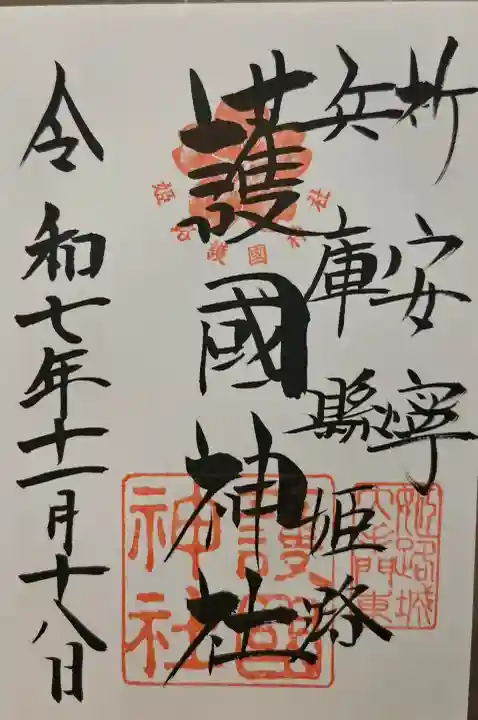 祈安寧
兵庫縣姫路
護國神社
令和七年十一月十八日
姫路護國神社
護國神社
姫路城大手門東